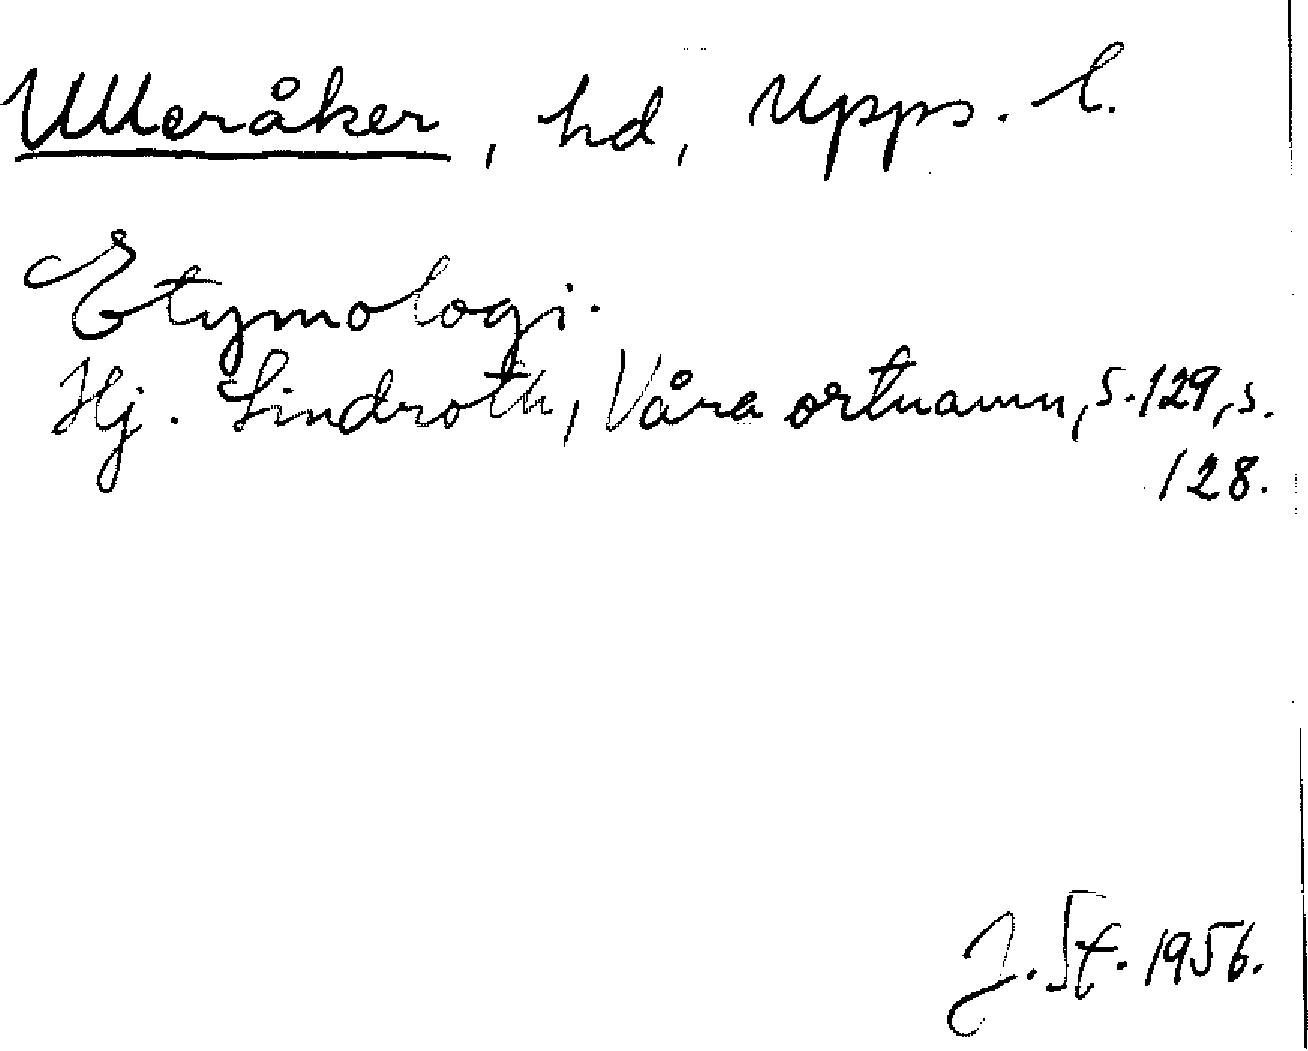 Ulleråker, hd, Upps. l.
Etymologi.
Hj. Lindroth, Våra ortnamn, s. 129, s.
128.
J. St. 1956.